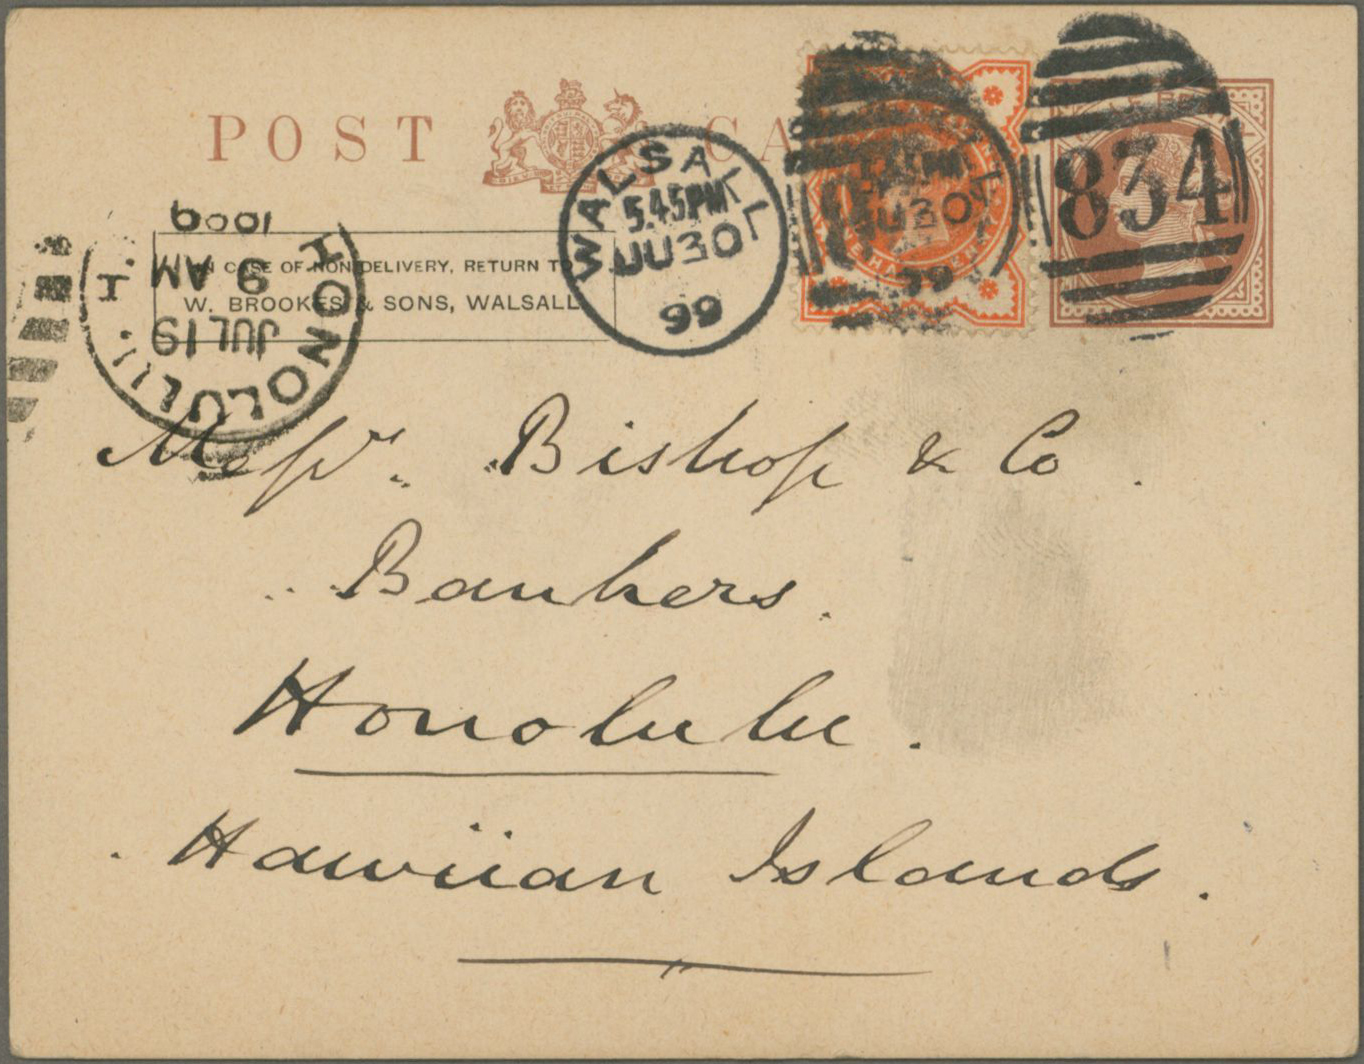 POST CA
WALSALL
5.45PM
JU30
99
834
IN CASE OF NON DELIVERY, RETURN TO
W. BROOKES & SONS, WALSALL
HONOLULU. H. I.
JUL 19
9 AM
JU30
99
Messrs. Bishop & Co.
Bankers.
Honolulu.
Hawiian Islands.